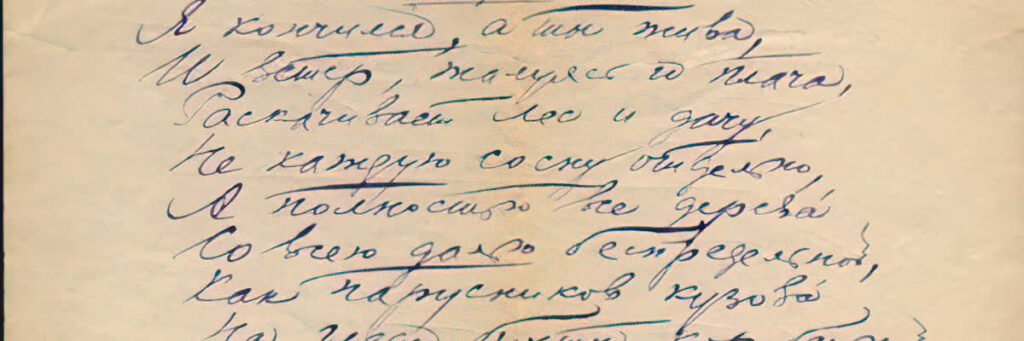 Я кончился, а ты жива,
И ветер, жалуясь и плача,
Раскачивает лес и дачу,
Не каждую сосну отдельно,
А полностью все дерева́
Со всею далью беспредельной,
Как парусников кузова́
На глади бухты